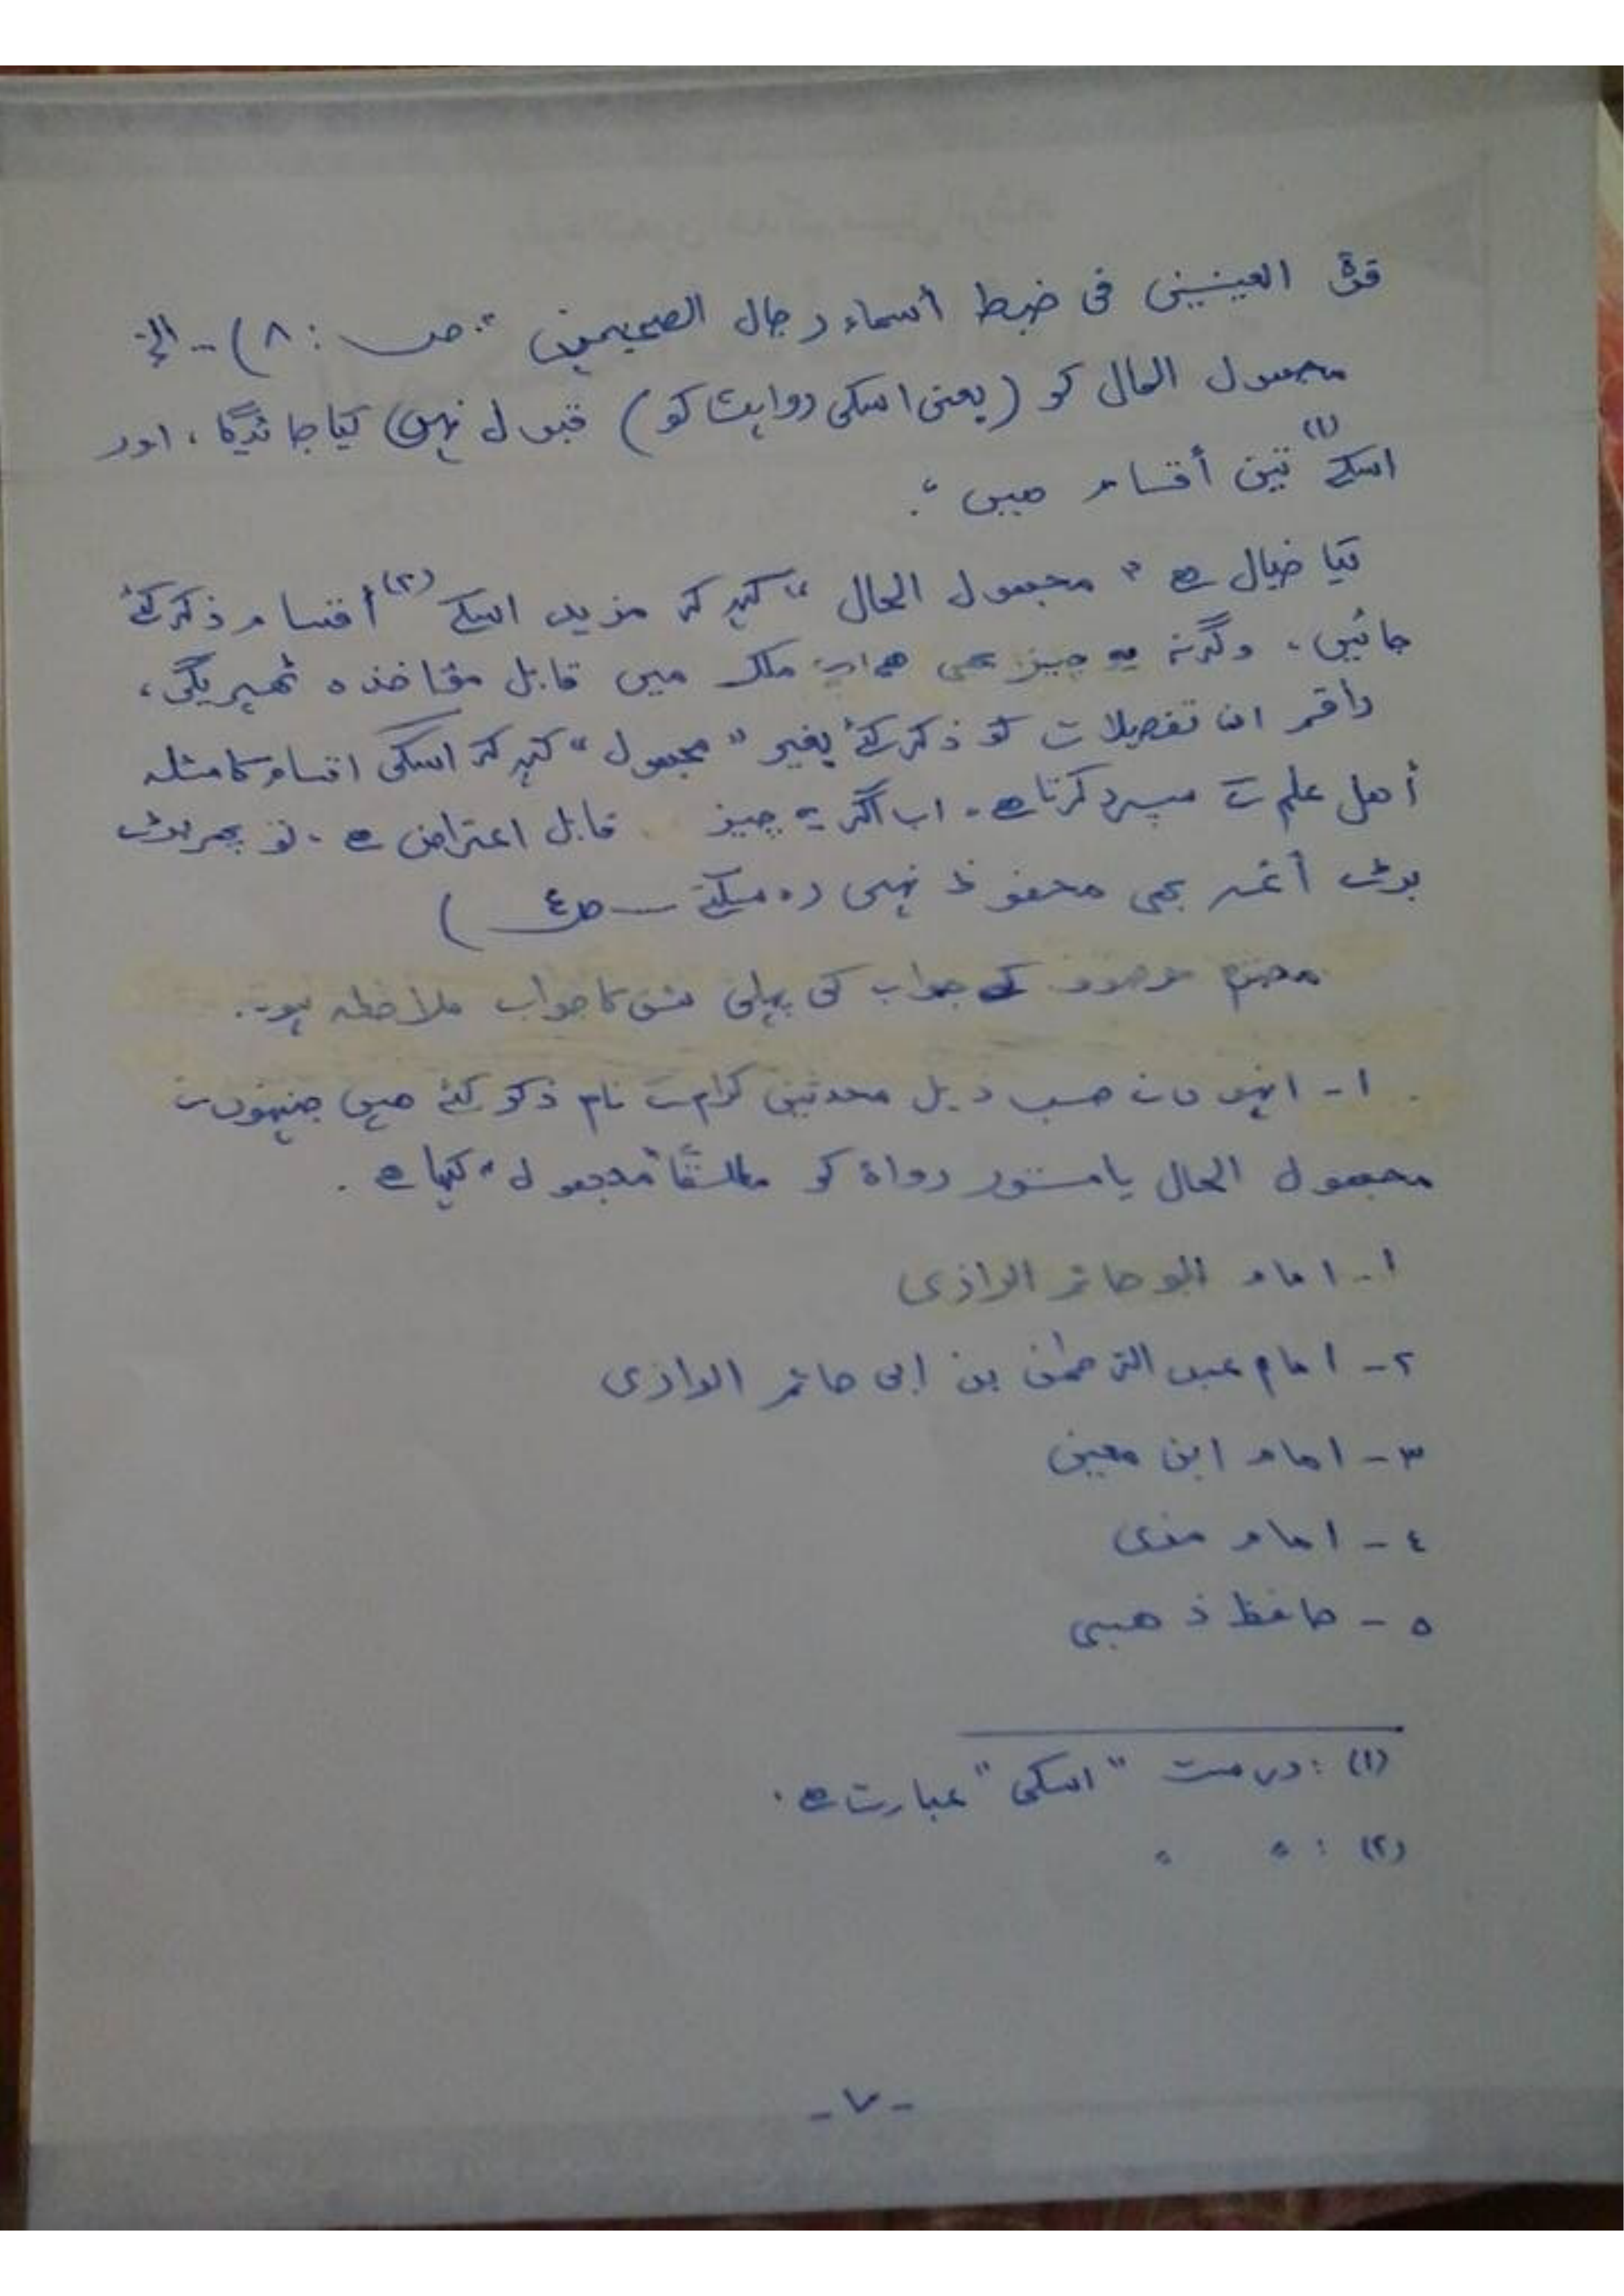 قرة العينين فى ضبط أسماء رجال الصحيحين" ص : ٨) - الخ
مجہول الحال کو (یعنی اسکی روایت کو) قبول نہیں کیا جائیگا، اور
اسکے (۱) تین أقسام ہیں "۔
کیا خیال ہے " مجہول الحال " کہہ کر مزید اسکے (۲) أقسام ذکر کئے
جائیں، وگرنہ یہ چیز بھی ملک میں قابل مؤاخذہ ٹھہریگی،
راقم ان تفصیلات کو ذکر کئے بغیر "مجہول" کہہ کر اسکی اقسام کا مسئلہ
أهل علم کے سپرد کرتا ہے۔ اب اگر یہ چیز قابل اعتراض ہے ۔ تو پھر بڑے
بڑے أئمہ بھی محفوظ نہیں رہ سکتے ــ ص٤ )
محترم موصوف کے جواب کی پہلی شق کا جواب ملاحظہ ہو۔
۱ - انہوں نے حسب ذیل محدثین کرام کے نام ذکر کئے ہیں جنہوں نے
مجہول الحال یا مستور رواۃ کو مطلقًا "مجہول" کہا ہے ۔
۱ - امام ابو حاتم الرازی
۲ - امام عبد الرحمٰن بن ابی حاتم الرازی
۳ - امام ابن معین
٤ - امام مزی
٥ - حافظ ذھبی
(۱) : درست "اسکی" عبارت ہے ۔
(۲) : " "
- ٧ -